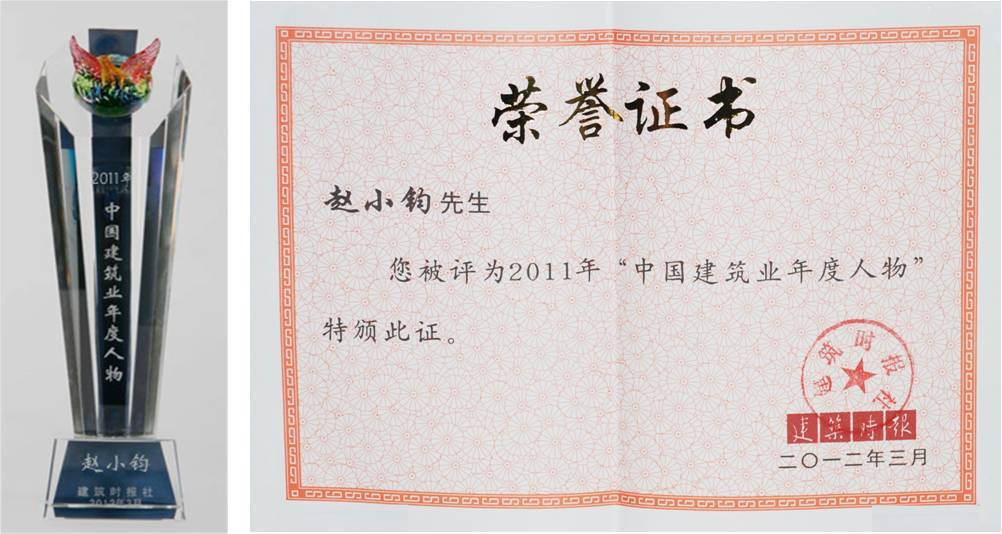 2011年
中国建筑业年度人物
赵小钧
建筑时报社
2012年3月
荣誉证书
赵小钧先生
您被评为2011年“中国建筑业年度人物”
特颁此证。
建筑时报社
建筑时报
二〇一二年三月